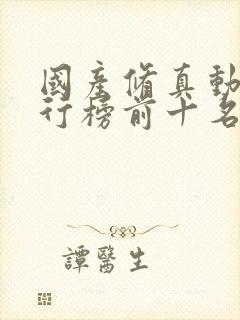 國產脩真動
行榜前十名
譚醫生